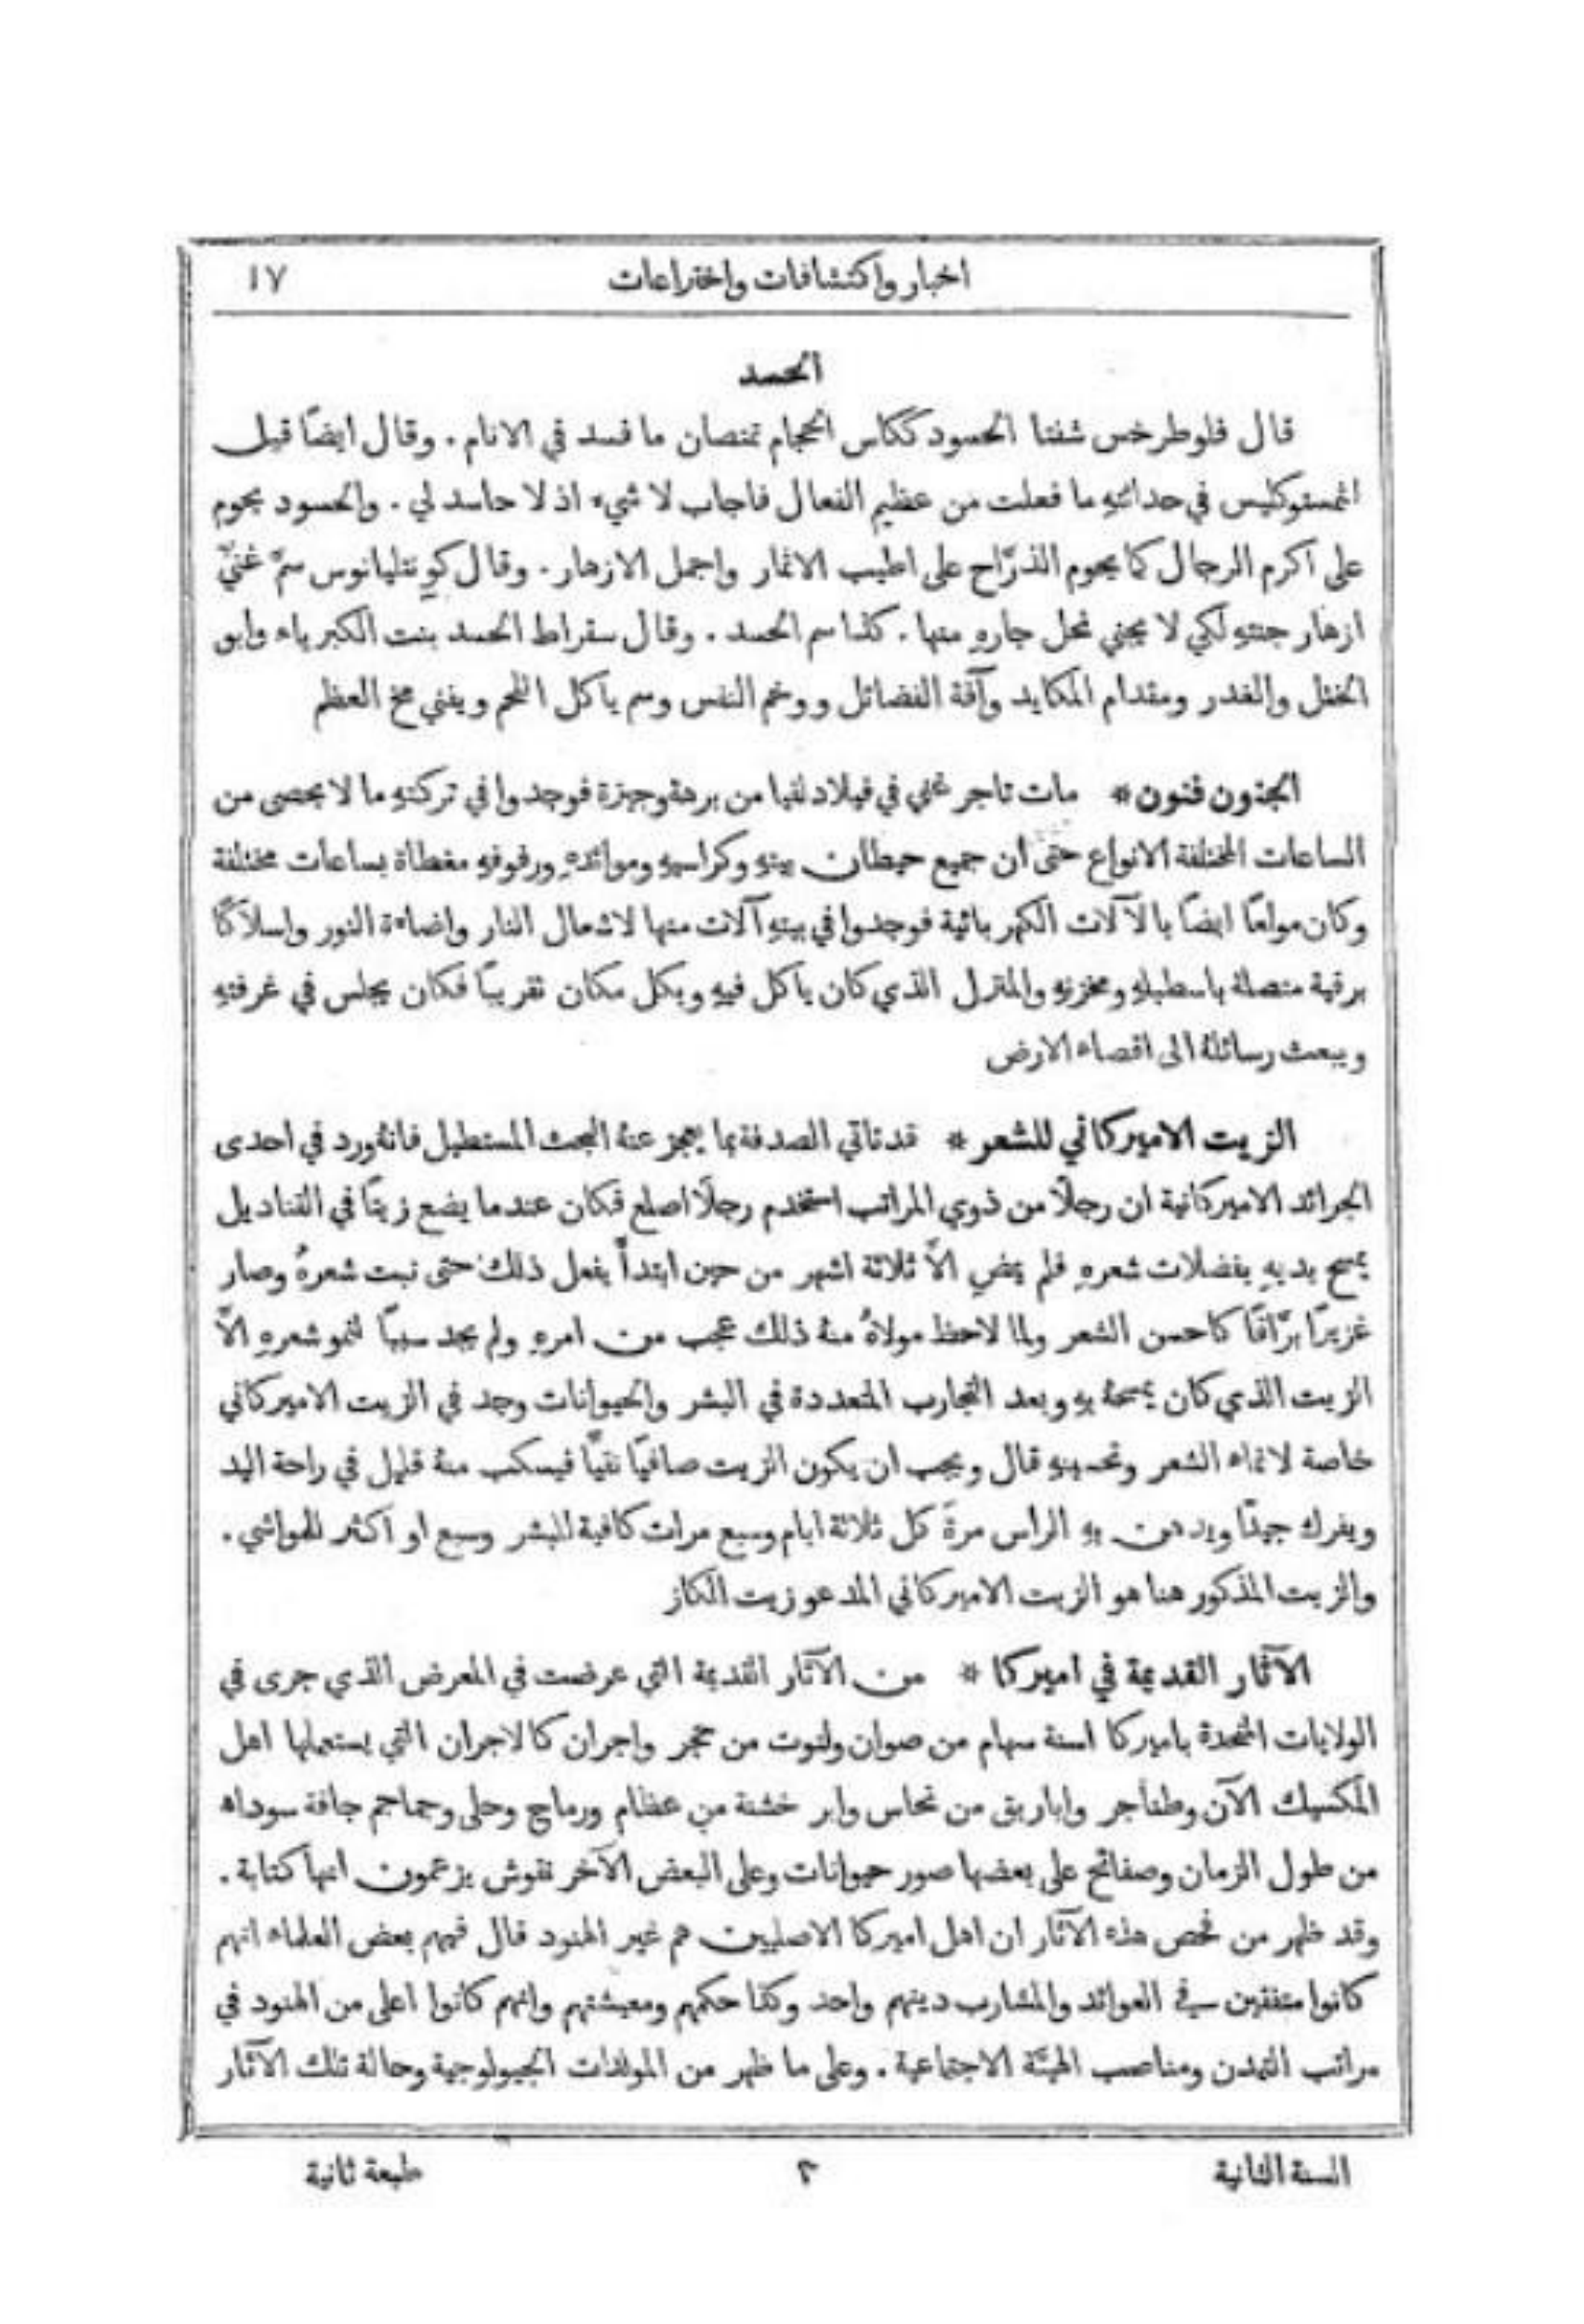 اخبار واكتشافات واختراعات
١٧
الحسد
قال فلوطرخس شفتا الحسود ككاس الحجام تمتصان ما فسد في الانام. وقال ايضًا قيل
اثمستوكليس في حداثتهِ ما فعلت من عظيم الفعال فاجاب لا شيء اذ لا حاسد لي. والحسود يحوم
على اكرم الرجال كما يحوم الذرَّاح على اطيب الاثمار واجمل الازهار. وقال كوِنتليانوس سمَّ غنيٌّ
ازهار جنتهِ لكي لا يجني نحل جارهِ منها. كذا سم الحسد. وقال سقراط الحسد بنت الكبرياء وابو
الختل والغدر ومقدام المكايد وآفة الفضائل ووخم النفس وسم ياكل اللحم ويفني مخ العظم
الجنون فنون * مات تاجر غني في فيلادلفيا من برهة وجيزة فوجدوا في تركتهِ ما لا يحصى من
الساعات المختلفة الانواع حتى ان جميع حيطان بيتهِ وكراسيهِ وموائدهِ ورفوفهِ مغطاة بساعات مختلفة
وكان مولعًا ايضًا بالآلات الكهربائية فوجدوا في بيتهِ آلات منها لاشعال النار واضاءة النور واسلاكًا
برقية متصلة باسطبلهِ ومخزنهِ والمنزل الذي كان ياكل فيهِ وبكل مكان تقريبًا فكان يجلس في غرفتهِ
ويبعث رسائلهُ الى اقصاء الارض
الزيت الاميركاني للشعر * قد تاتي الصدفة بما يعجز عنهُ البحث المستطيل فانهُ ورد في احدى
الجرائد الاميركانية ان رجلًا من ذوي المراتب استخدم رجلًا اصلع فكان عندما يضع زيتًا في القناديل
يمسح يديهِ بفضلات شعرهِ فلم يمضِ الَّا ثلاثة اشهر من حين ابتدأَ يفعل ذلك حتى نبت شعرهُ وصار
غزيرًا برَّاقًا كاحسن الشعر ولما لاحظ مولاهُ منهُ ذلك عجب من امرهِ ولم يجد سببًا لنمو شعرهِ الَّا
الزيت الذي كان يمسحهُ بهِ وبعد التجارب المتعددة في البشر والحيوانات وجد في الزيت الاميركاني
خاصة لانماء الشعر وتحسينهِ قال ويجب ان يكون الزيت صافيًا نقيًّا فيسكب منهُ قليل في راحة اليد
ويفرك جيدًا ويدهن بهِ الراس مرةً كل ثلاثة ايام وسبع مرات كافية للبشر وسبع او اكثر للمواشي.
والزيت المذكور هنا هو الزيت الاميركاني المدعو زيت الكاز
الآثار القديمة في اميركا * من الآثار القديمة التي عرضت في المعرض الذي جرى في
الولايات المتحدة باميركا اسنة سهام من صوان ولتوت من حجر واجران كالاجران التي يستعملها اهل
المكسيك الآن وطناجر واباريق من نحاس وابر خشنة من عظام ورماح وحلى وجماجم جافة سوداء
من طول الزمان وصفائح على بعضها صور حيوانات وعلى البعض الآخر نقوش يزعمون انها كتابة.
وقد ظهر من فحص هذه الآثار ان اهل اميركا الاصليين هم غير الهنود قال فيهم بعض العلماء انهم
كانوا متفقين في العوائد والمشارب دينهم واحد وكذا حكمهم ومعيشتهم وانهم كانوا اعلى من الهنود في
مراتب التمدن ومناصب الهيئة الاجتماعية. وعلى ما ظهر من المولدات الجيولوجية وحالة تلك الآثار
السنة الثانية
٣
طبعة ثانية